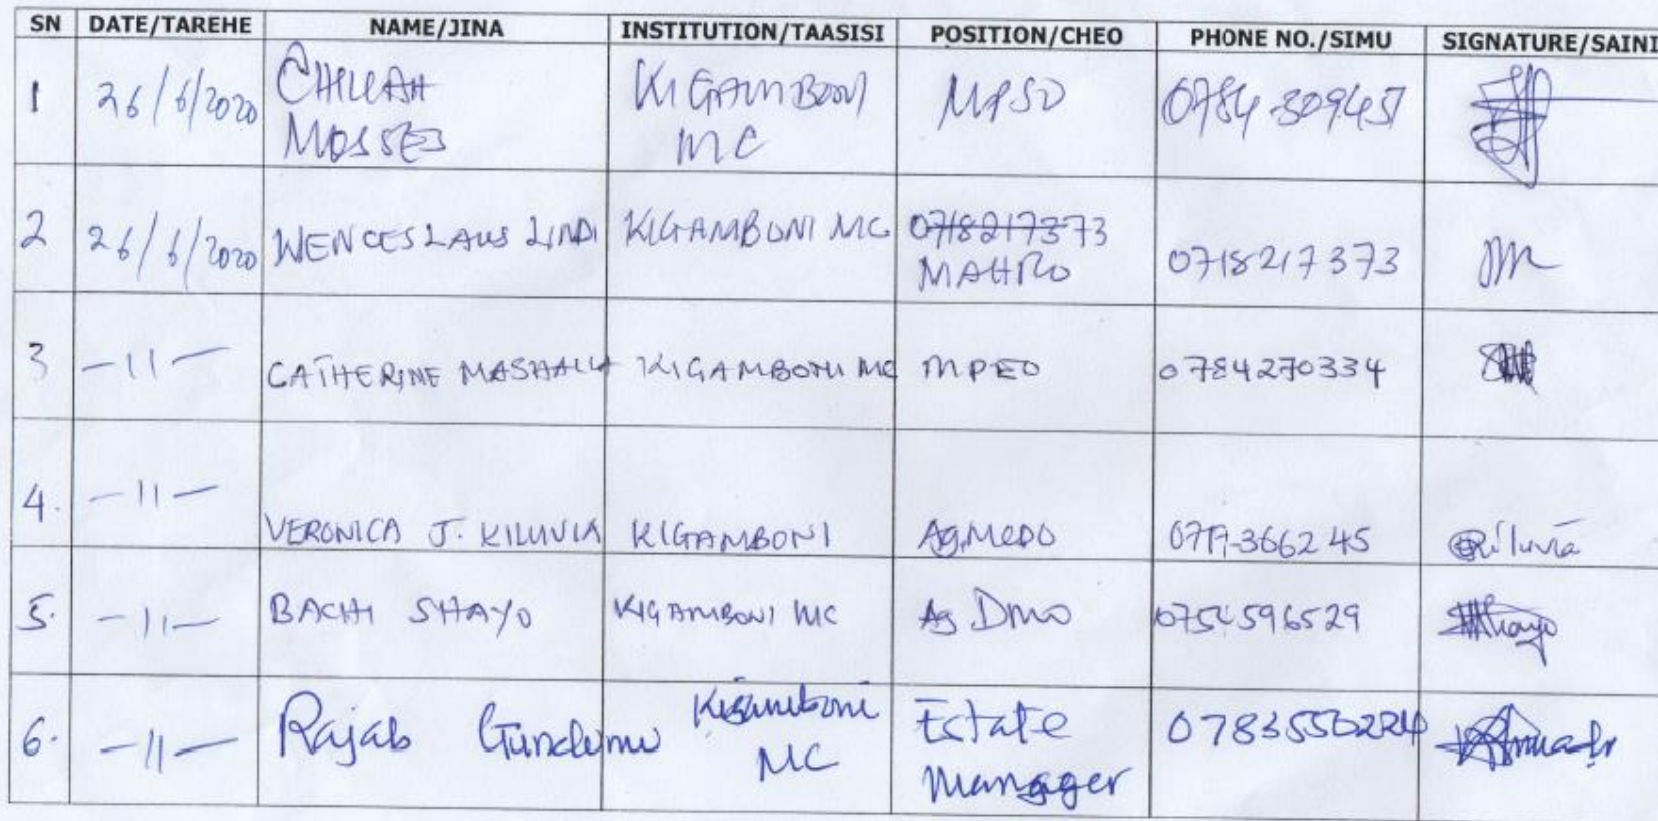 SN DATE/TAREHE NAME/JINA INSTITUTION/TAASISI POSITION/CHEO PHONE NO./SIMU SIGNATURE/SAINI
1 26/6/2020 MOSSES KIGAMBONI MC
2 26/6/2020 WENCESLAUS LINDI KIGAMBONI MC 0718217373 MAHRO 0718217373
3 -11- CATHERINE MASHALLA KIGAMBONI MC MPEO 0784270334
4. -11- VERONICA J. KILUVIA KIGAMBONI Ag.MEDO Kiluvia
5. -11- BACHI SHAYO KIGAMBONI MC Ag DMO Shayo
6. -11- Rajab Kigamboni MC Estate Manager